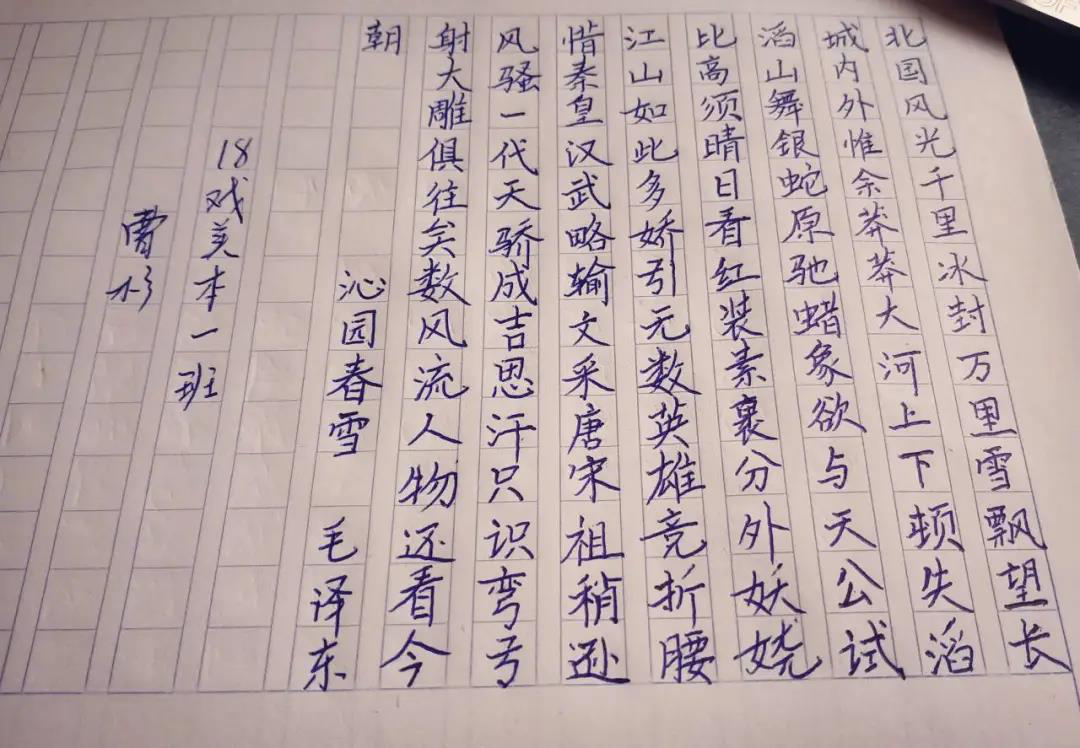 北国风光千里冰封万里雪飘望长
城内外惟余莽莽大河上下顿失滔
滔山舞银蛇原驰蜡象欲与天公试
比高须晴日看红装素裹分外妖娆
江山如此多娇引无数英雄竞折腰
惜秦皇汉武略输文采唐宋祖稍逊
风骚一代天骄成吉思汗只识弯弓
射大雕俱往矣数风流人物还看今
朝 沁园春雪 毛泽东
18戏美本一班
曹杉